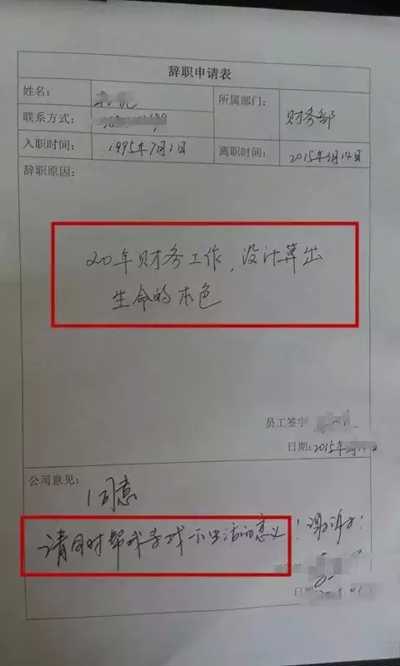 辞职申请表
姓名: 所属部门: 财务部
联系方式:
入职时间: 1995年7月1日 离职时间: 2015年5月14日
辞职原因:
20年财务工作,没计算出
生命的本色
员工签字
日期: 2015年
公司意见:
同意
请同时帮我寻找一下生活的意义!谢谢!
日期